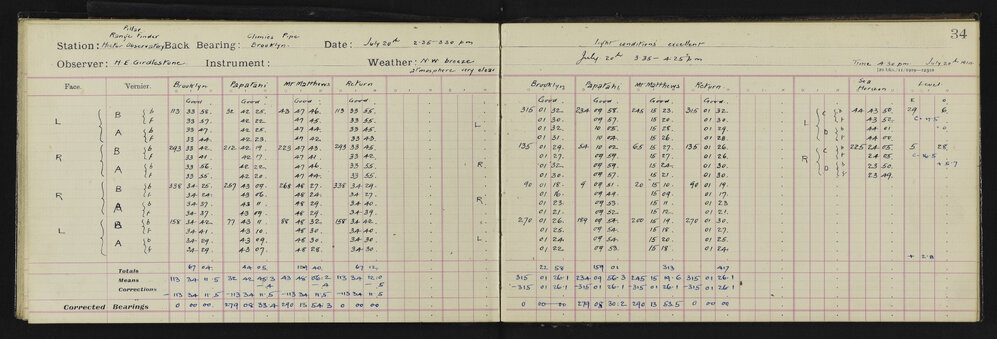 Pillar
Range Finder
Station: Hector Observatory Back Bearing: Climies Pipe Brooklyn. Date: July 20th 2.35-3.30 pm
Observer: H.E Girdlestone Instrument: Weather: N.W breeze
atmosphere very clear
Face. Vernier. Brooklyn Papatahi Mt Matthews Return
Good Good Good. Good.
L B b 113 33 58. 32 42 25. 43 47 46. 113 33 55.
f 33 57. 42 22. 47 45. 33 55.
A b 33 47. 42 25. 47 44. 33 45.
f 33 44. 42 23. 47 42. 33 43.
R B b 293 33 42. 212 42 19. 223 47 43. 293 33 45.
f 33 41. 42 17. 47 41. 33 42.
A b 33 56. 42 22. 47 46. 33 55.
f 33 55. 42 20. 47 44. 33 55.
R B b 338 34 25. 257 43 09. 268 48 27. 338 34 29.
f 34 24. 43 06. 48 24. 34 27.
A b 34 37. 43 11. 48 29. 34 40.
f 34 37. 43 09. 48 29. 34 39.
L B b 158 34 42. 77 43 11. 88 48 32. 158 34 42.
f 34 41. 43 10. 48 30. 34 40.
A b 34 29. 43 09. 48 30. 34 30.
f 34 29. 43 07. 48 28. 34 30.
Totals 67 04. 44 05. 124 40. 67 12.
Means 113 34 11.5 32 42 45.3 43 48 06.2 113 34 12.0
Corrections - .4 - .4 - .5
-113 34 11.5 -113 34 11.5 -113 34 11.5 -113 34 11.5
Corrected Bearings 0 00 00. 279 08 33.4 290 13 54.3 0 00 00
34
light conditions excellent
July 20th 3.35 - 4.25 pm
Time 4.30 pm July 20th
Brooklyn Papatahi Mt Matthews Return. Sea Horizon Level
Good. Good Good. Good.
L 315 01 32. 234 09 58. 245 15 23. 315 01 32.
01 30. 09 57. 15 20. 01 30.
01 32. 10 05. 15 28. 01 29.
01 31. 10 04 15 26. 01 28.
R 135 01 29. 54 10 02 65 15 27. 135 01 26.
01 27. 09 59. 15 27. 01 26.
01 32. 09 59. 15 24. 01 30.
01 30. 09 57. 15 21. 01 30.
R 90 01 18. 9 09 51. 20 15 10. 90 01 19.
01 16. 09 49. 15 09. 01 17.
01 23. 09 53. 15 11. 01 23.
01 21. 09 52. 15 12. 01 21.
L 270 01 26. 189 09 54. 200 15 19. 270 01 30.
01 25. 09 54. 15 18. 01 27.
01 24. 09 54. 15 20. 01 25.
01 22. 09 53. 15 18. 01 24.
22 58 159 01 313 417
315 01 26.1 234 09 56.3 245 15 19.6 315 01 26.1
-315 01 26.1 -315 01 26.1 -315 01 26.1 -315 01 26.1
0 00 00 279 08 30.2 290 13 53.5 0 00 00.
E O
L C b 44 43 50. 29 6.
f 43 52.
D b 44 01
f 44 00.
R C b 225 24 05. 5 28.
f 24 05
D b 23 50. + 5.7
f 23 49.
+ 2.8